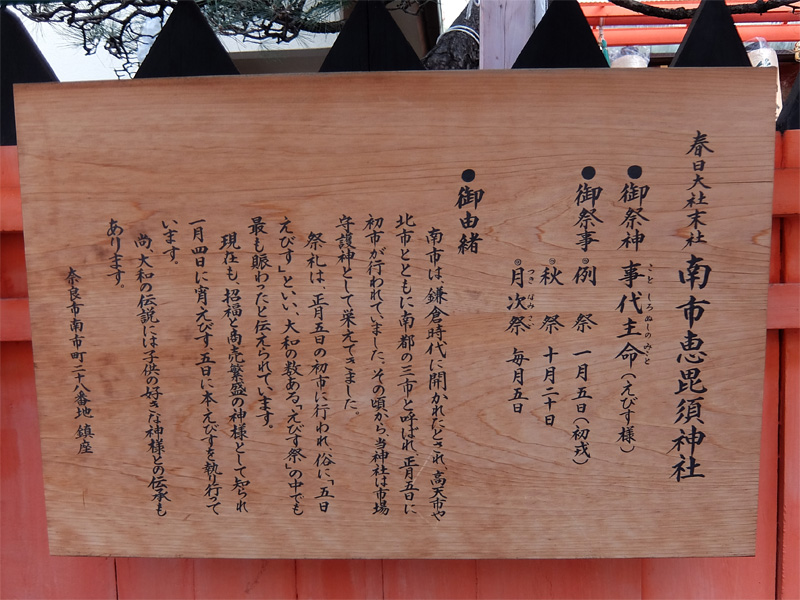 春日大社末社 南市恵毘須神社
●御祭神 事代主命(えびす様)
ことしろぬしのみこと
●御祭事 ◎例祭 一月五日(初戎)
◎秋祭 十月二十日
◎月次祭 毎月五日
つきなみさい
●御由緒
南市は鎌倉時代に開かれたとされ、高天市や
北市とともに南都の三市と呼ばれ、正月五日に
初市が行われていました。その頃から当神社は市場
守護神として栄えてきました。
祭礼は、正月五日の初市に行われ、俗に「五日
えびす」といい、大和の数ある「えびす祭」の中でも
最も賑わったと伝えられています。
現在も、招福と商売繁盛の神様として知られ
一月四日に宵えびす、五日に本えびすを執り行って
います。
尚、大和の伝説には子供の好きな神様との伝承も
あります。
奈良市南市町二十八番地 鎮座